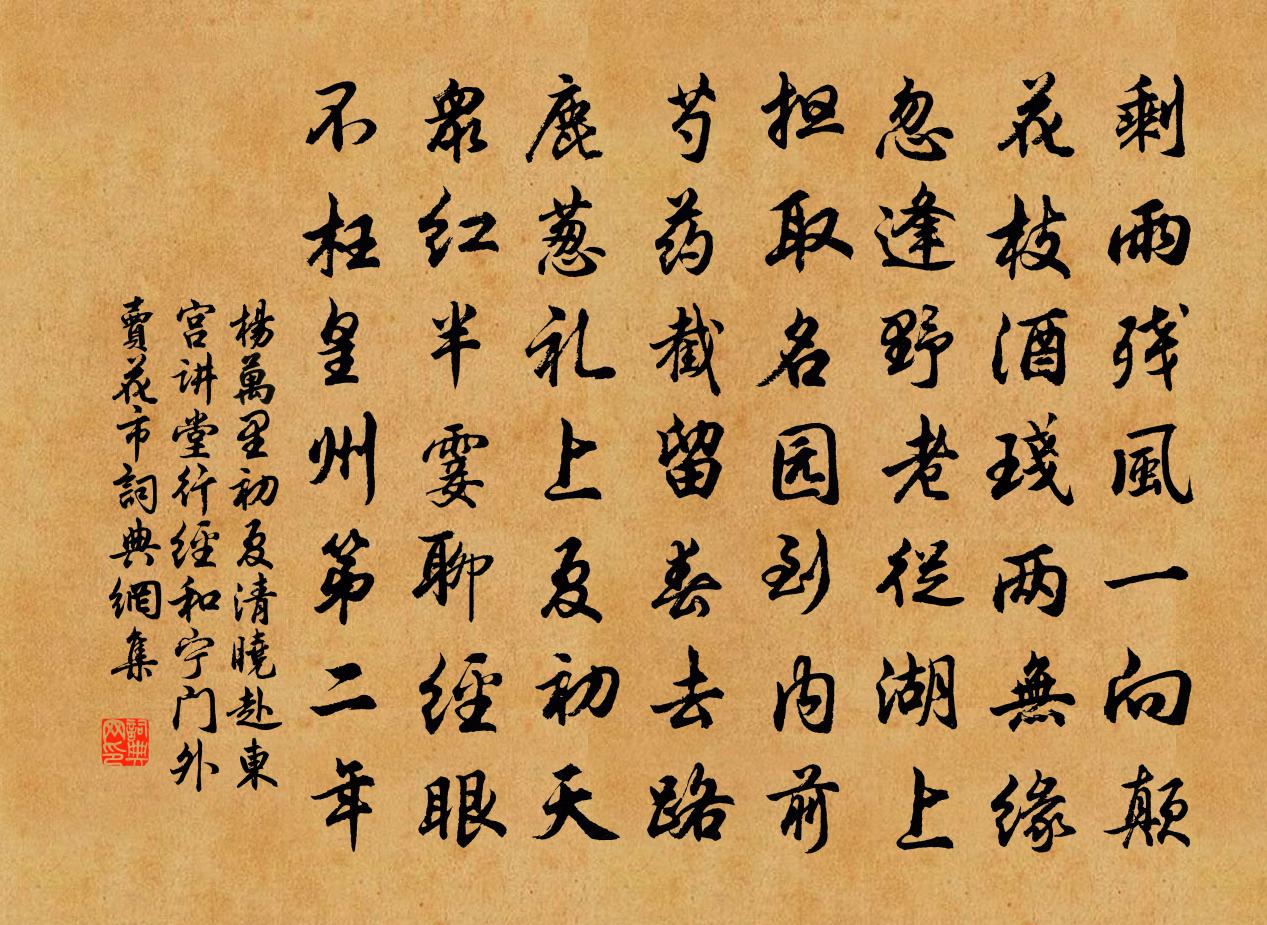 剩雨残風一向颠
花枝酒琖两無缘
忽逢野老従湖上
担取名园到内前
芍药截留春去路
鹿葱礼上夏初天
衆红半霎聊經眼
不枉皇州第二年
楊萬里初夏清曉赴東
宫讲堂行經和宁门外
賣花市詞典網集
詞典
网印